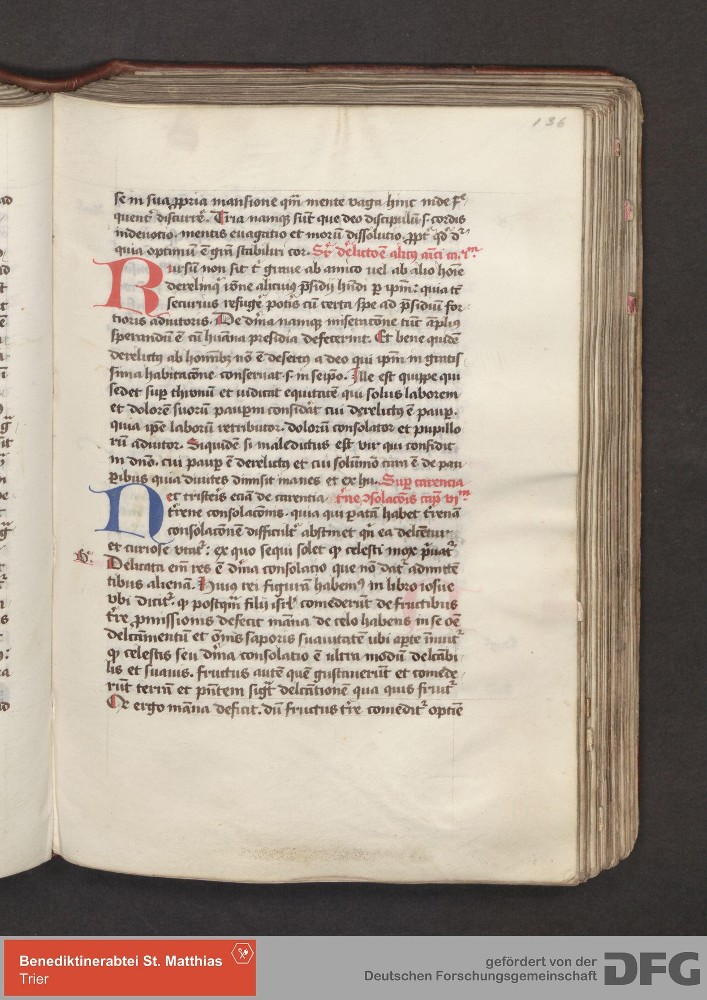 136
se in sua ꝓpria mansione qm̄ mente vaga hinc inde fᵉ
quentᵉ discurreᵉ. Tria namqꝫ sūt que deo discipulū .s. cordis
indeuotio. mentis euagatio et morū dissolutio
quia optimū ē grā stabiliri cor.
Rursū non sit tᵉ graue ab amico uel ab alio hoīe
derelinqͥ iōne alicuiꝰ p̄sidij hūdi ꝑ ip̄m: quia tē
securius refugeᵉ potis cū certa spe ad p̄sidiū for
tioris adiutoris. De diīna namqꝫ miseracōne tūc ampliꝰ
sperandū ē cū hūana presidia defecerint. Et bene quidē
derelictꝰ ab homībꝫ nō ē desertꝰ a deo qui ip̄m in gratis
sima habitacōne conseruat .s. in seip̄o. Ille est quippe qui
sedet suꝑ thronū et iudicat equitatē qui solus laborem
et dolorē suorū pauꝑum considāt cui derelictꝰ ē pauꝑ.
quia ip̄e laborū retributor. dolorū consolator et pupillo
rū adiutor. Siquidē si maledictus est vir qui confidit
in dnō. cui pauꝑ ē derelictꝰ et cui solūmō cura ē de pau
ꝑibus quia diuites dimisit inanes et ex hiī. Suꝑ carencia
Nec tristeris eciā de carentia t̄rne ↄsolacōis cap̄ vjᵐ
tᵉrene consolacōnis. quia qui paratā habet tᵉrenā
consolacōnē difficilitᵉ abstinet qn̄ ea delectetur
et curiose vtatᵉ: ex quo sequi solet qꝫ celesti mox p̄uatᵉ
Delicata em̄ res ē diīna consolatio que nō datᵉ admittē
tibus alienā. Huiꝰ rei figurā habemꝰ in libro iosue
vbi dicitᵉ. qꝫ postqm̄ filij isrl̄ comederūt de fructibus
tᵉre ꝓmissionis defecit māna de celo habens in se oē
delectamentū et om̄is saporis suauitatē ubi aꝑte īnuitᵉ
qꝫ celestis seu diīna consolatio ē ultra modū delectabi
lis et suauis. fructus autē quē gustauerūt et comede
rūt terrā et p̄ntem sigᵗ delectationē qua quis fruitᵉ
Et ergo māna deficit. dū fructus tᵉre comeditᵉ optiē
Benediktinerabtei St. Matthias
Trier
gefördert von der
Deutschen Forschungsgemeinschaft
DFG